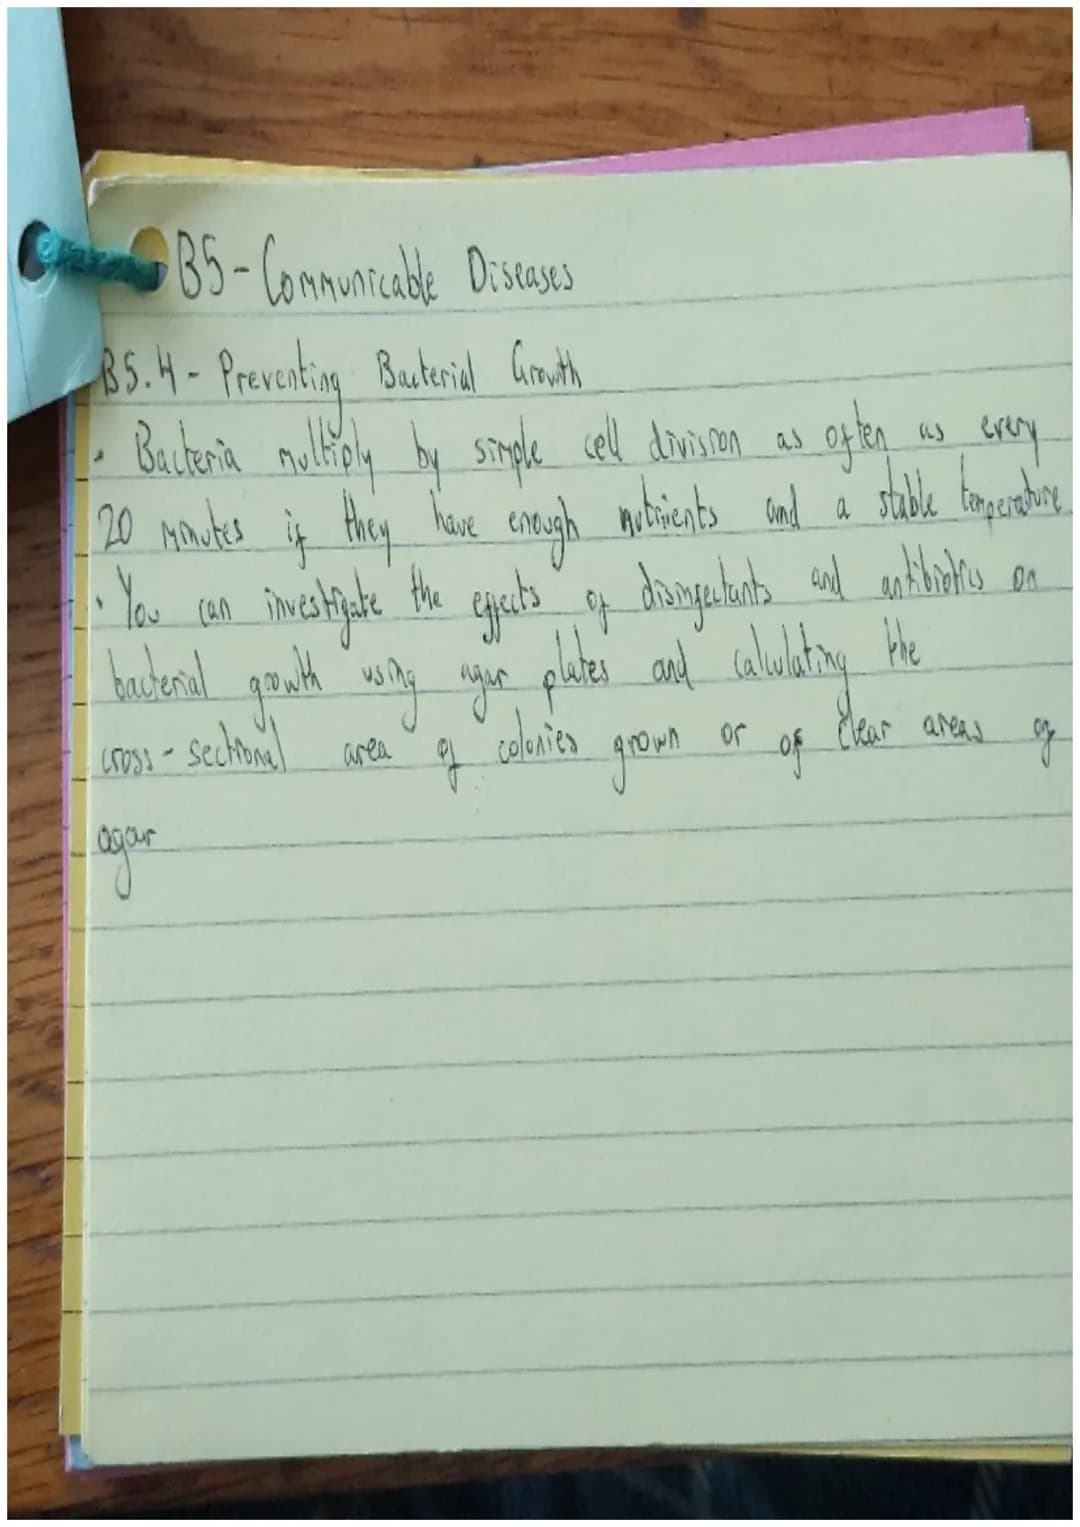 B5-Communicable Diseases
B5.4- Preventing Bacterial Growth
• Bacteria multiply by simple cell division as often as every
20 minutes if they have enough nutrients and a stable temperature
• You can investigate the effects of disinfectants and antibiotics on
bacterial growth using agar plates and calculating the
cross-sectional area of colonies grown or of clear areas of
agar